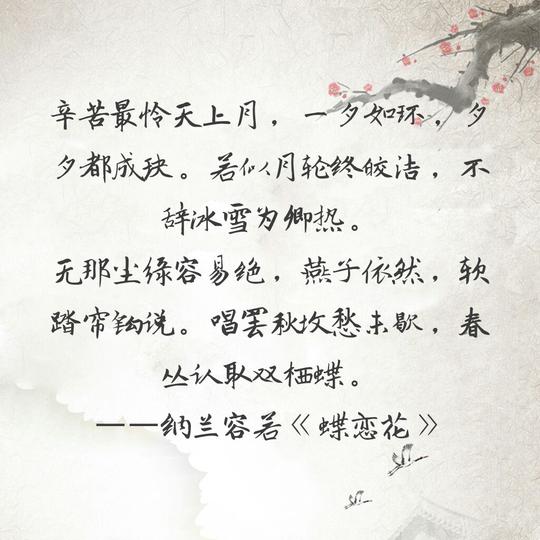 辛苦最怜天上月，一夕如环，夕
夕都成玦。若似月轮终皎洁，不
辞冰雪为卿热。
无那尘缘容易绝，燕子依然，软
踏帘钩说。唱罢秋坟愁未歇，春
丛认取双栖蝶。
——纳兰容若《蝶恋花》